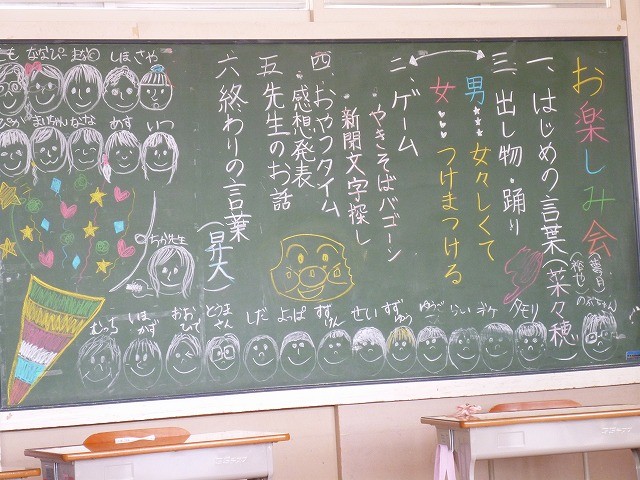 お楽しみ会
一、はじめの言葉(菜々穂)
三、出し物・踊り
男
女々しくて
女
つけまつける
二、ゲーム
やきそばバゴーン
新聞文字探し
四、おやつタイム
感想発表
五、先生のお話
六、終わりの言葉
(昂大)
ななぴー
しほ
さや
まいちゃん
なさな
めす
いつ
ちか先生
むっち
いほ
かず
おお
ひで
とうま
さん
しだ
よしば
すずけん
せい
すず
ゆう
タモリ